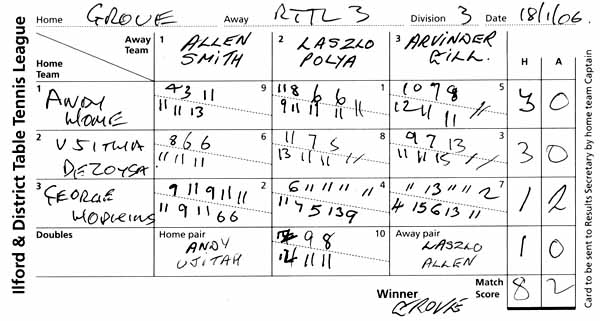 Ilford & District Table Tennis League
Home GROVE Away RTTL 3 Division 3 Date 18/1/06.
Away Team
Home Team
1 ALLEN SMITH
2 LASZLO POLYA
3 ARVINDER GILL.
H A
1 ANDY HOWE
9
4 3 11
11 11 13
1
11 8 6 6
9 11 11 11 11
5
10 7 9 8
12 11 11 //
3 0
2 VJITHA DEZOYSA
6
8 6 6
11 11 11
8
11 7 5
13 11 11 //
3
9 7 13
11 11 15 //
3 0
3 GEORGE HOPKINS
2
9 11 9 11 11
11 9 11 6 6
4
6 11 11 11 11
11 7 5 13 9
7
11 13 11 11 2
4 15 6 13 11
1 2
Doubles
Home pair
ANDY
VJITAH
10
9 8
11 11
Away pair
LASZLO
ALLEN
1 0
Winner GROVE
Match Score 8 2
Card to be sent to Results Secretary by home team Captain